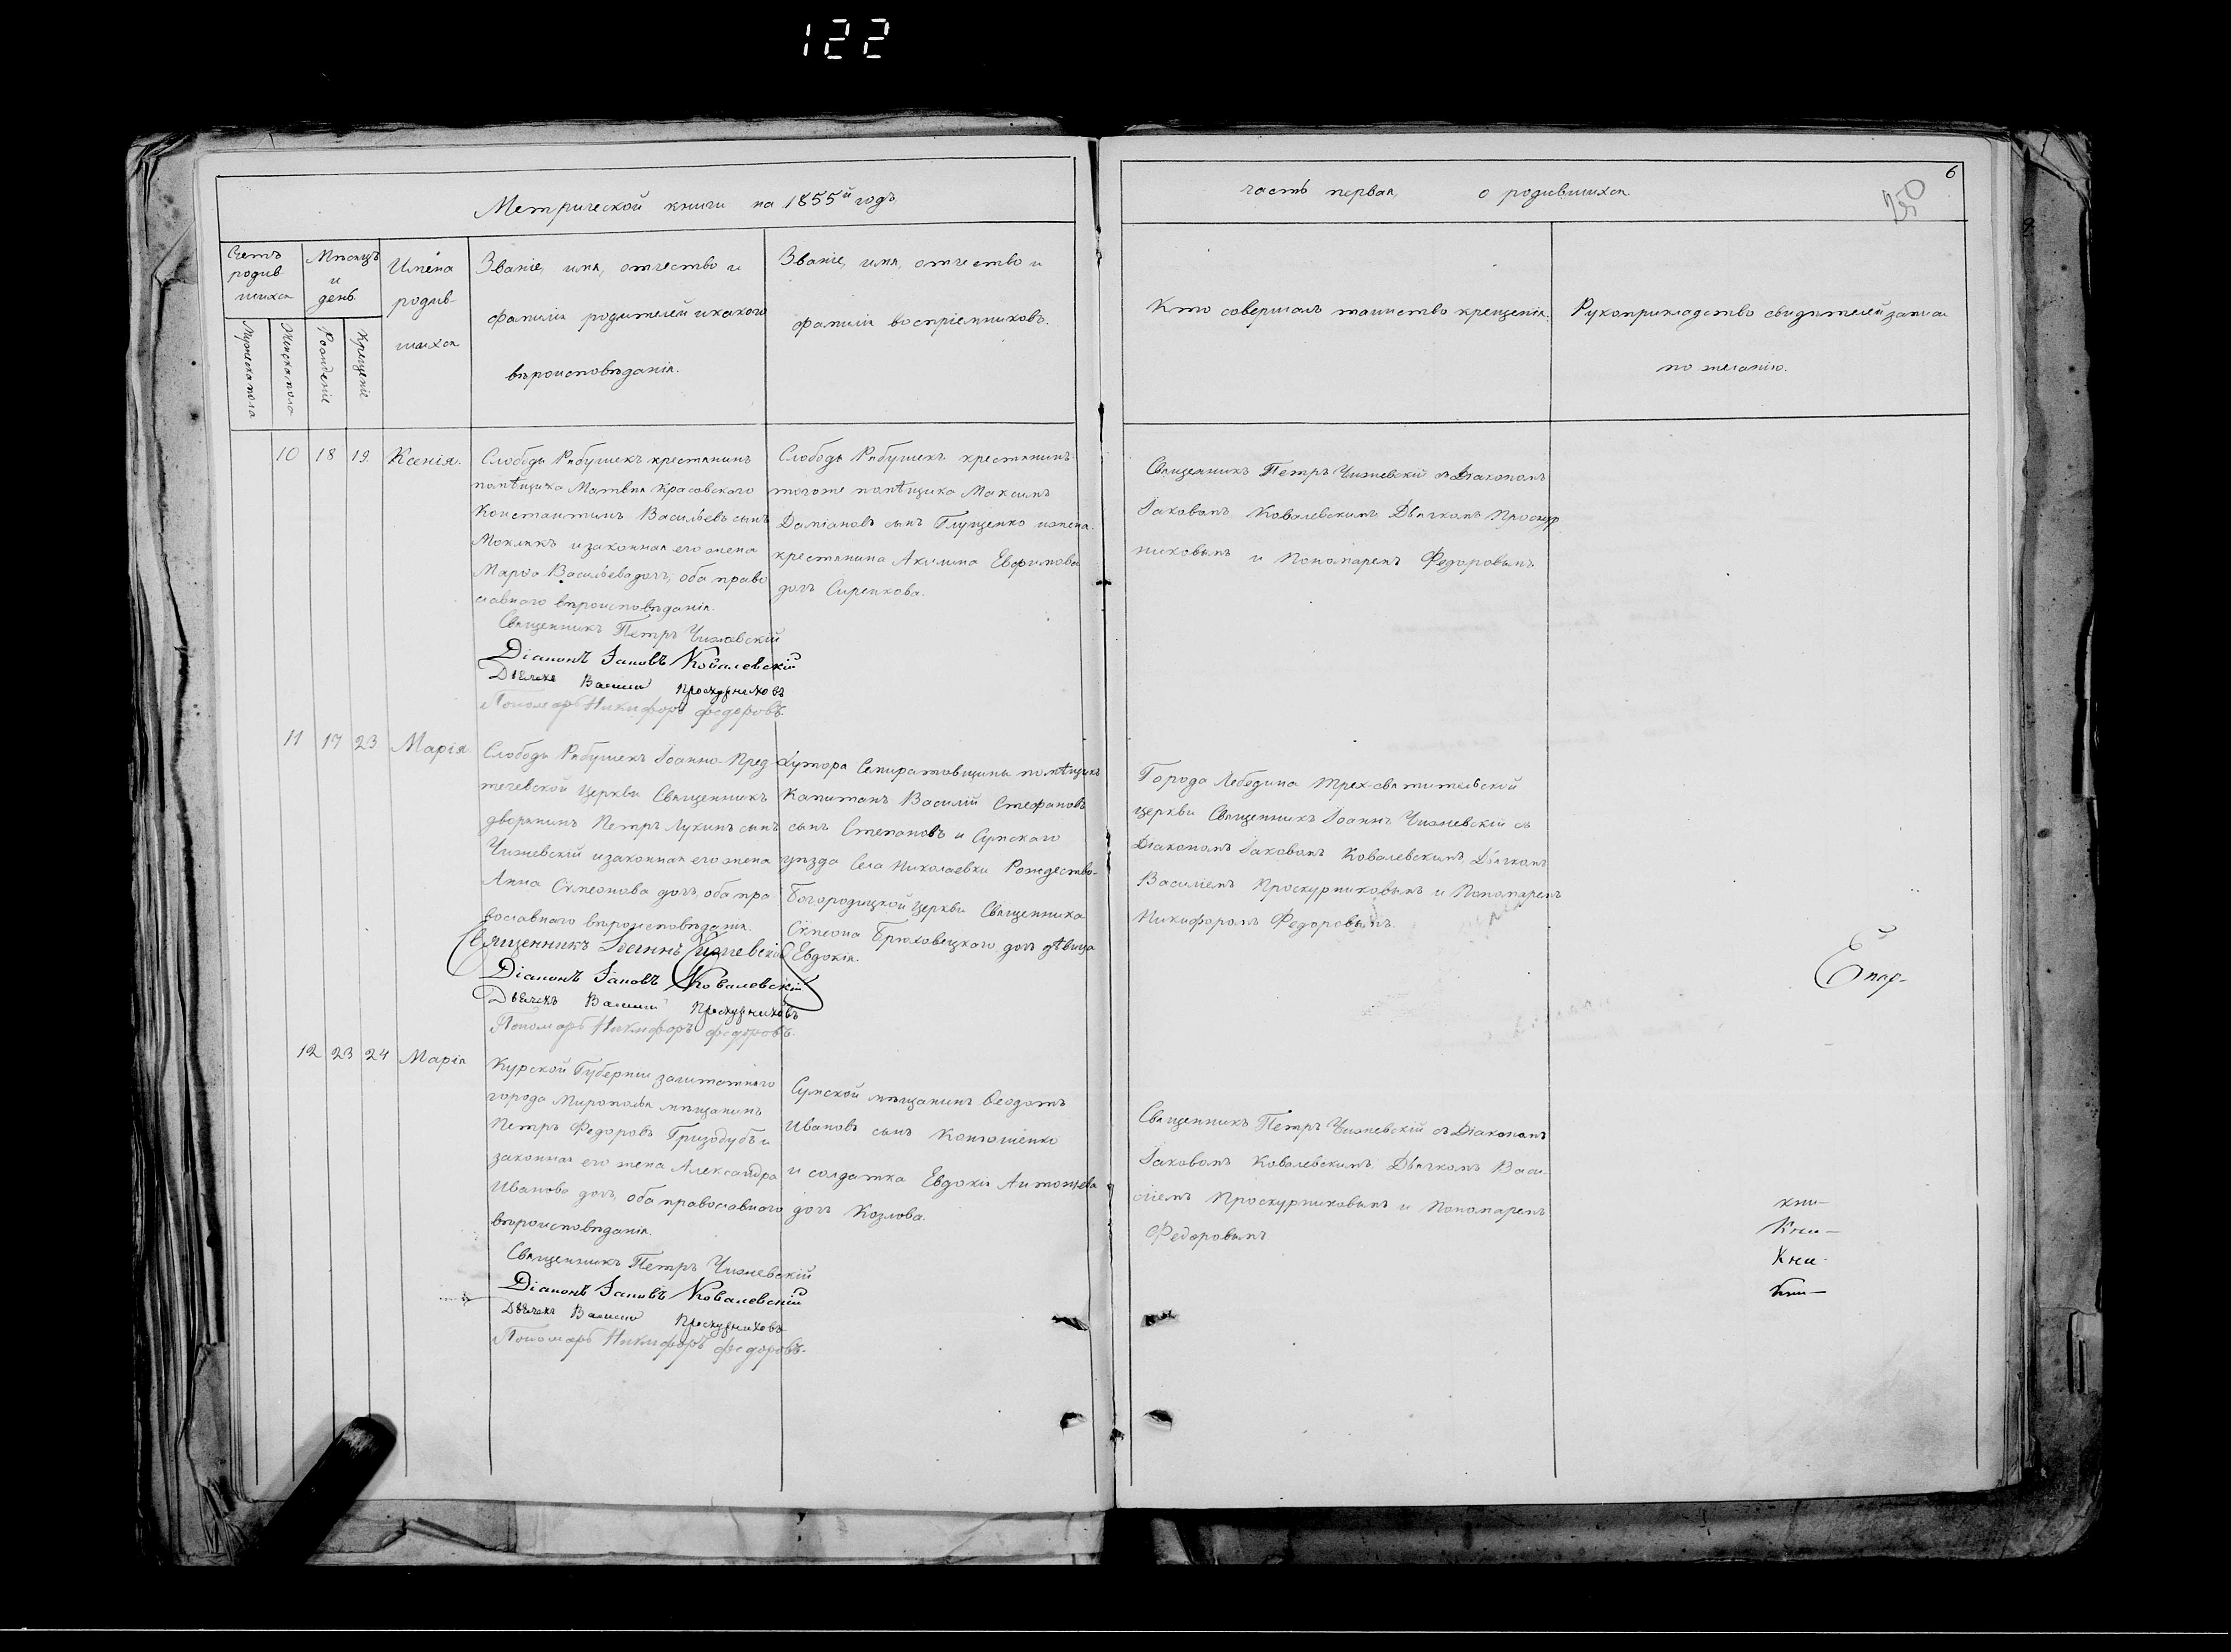 122
Метрической книги на 1855й годъ,
часть первая, о родившихся.
6
250
Счетъ родив шихся
Мужеска пола
Женска пола
Мѣсяцъ и день.
Рожденіе
Крещеніе
Имена родив- шихся
Званіе, имя, отчество и
фамилія родителей и какого
вѣроисповѣданія.
Званіе, имя, отчество и
фамилія воспріемниковъ.
Кто совершалъ таинство крещенія.
Рукоприкладство свидѣтелей записи
по желанію.
10 18 19. Ксенія.
Слободы Рябушекъ крестьянинъ
помѣщика Матвѣя Красовского
Константинъ Васильевъ сынъ
Моклякъ и законная его жена
Марѳа Васильева дочь, оба право
славного вѣроисповѣданія.
Священникъ Петръ Чижевскій
Діаконъ Іаковъ Ковалевскій
Дьячекъ Василий Проскурниковъ
Пономарь Никифоръ Федоровъ.
Слободы Рябушекъ крестьянинъ
тогоже помѣщика Максимъ
Даміановъ сынъ Глущенко и жена
крестьянина Акилина Евфимова
дочь Сиренкова.
Священникъ Петръ Чижевскій съ Діакономъ
Іаковомъ Ковалевскимъ, Дьячкомъ Проскур
никовымъ и Пономаремъ Федоровымъ
11 17 23 Марія
Слободы Рябушекъ Іоанно-Пред-
течевской Церкви Священникъ
дворянинъ Петръ Лукинъ сынъ
Чижевскій и законная его жена
Анна Сѵмеонова дочь, оба пра
вославного вѣроисповѣданія.
Священникъ Іоаннъ Чижевскій
Діаконъ Іаковъ Ковалевскій
Дьячекъ Василий Проскурниковъ
Пономарь Никифоръ Федоровъ.
Хутора Семиратовщины помѣщикъ
Капитанъ Василій Стефановъ
сынъ Степановъ и Сумского
уѣзда Села Николаевки Рождество-
Богородицкой Церкви Священника
Сѵмеона Брюховецкого дочь дѣвица
Евдокія.
Города Лебедина Трех-святительской
церкви Священникъ Іоаннъ Чижевскій съ
Діакономъ Іаковомъ Ковалевскимъ, Дьячкомъ
Василіемъ Проскурниковымъ и Пономаремъ
Никифоромъ Федоровымъ.
Епар-
12 23 24 Марія
Курской Губерніи заштатного
города Мирополья мѣщанинъ
Петръ Федоровъ Гризодубъ и
законная его жена Александра
Иванова дочь, оба православного
вѣроисповѣданія.
Священникъ Петръ Чижевскій
Діаконъ Іаковъ Ковалевскій
Дьячекъ Василий Проскурниковъ
Пономарь Никифоръ Федоровъ.
Сумской мѣщанинъ Ѳеодотъ
Ивановъ сынъ Конюшенко
и солдатка Евдокія Антоньева
дочь Козлова.
Священникъ Петръ Чижевскій съ Діакономъ
Іаковомъ Ковалевскимъ, Дьячкомъ Васи-
ліемъ Проскурниковымъ и Пономаремъ
Федоровымъ
кни-
Кни-
Кни-
Кни-